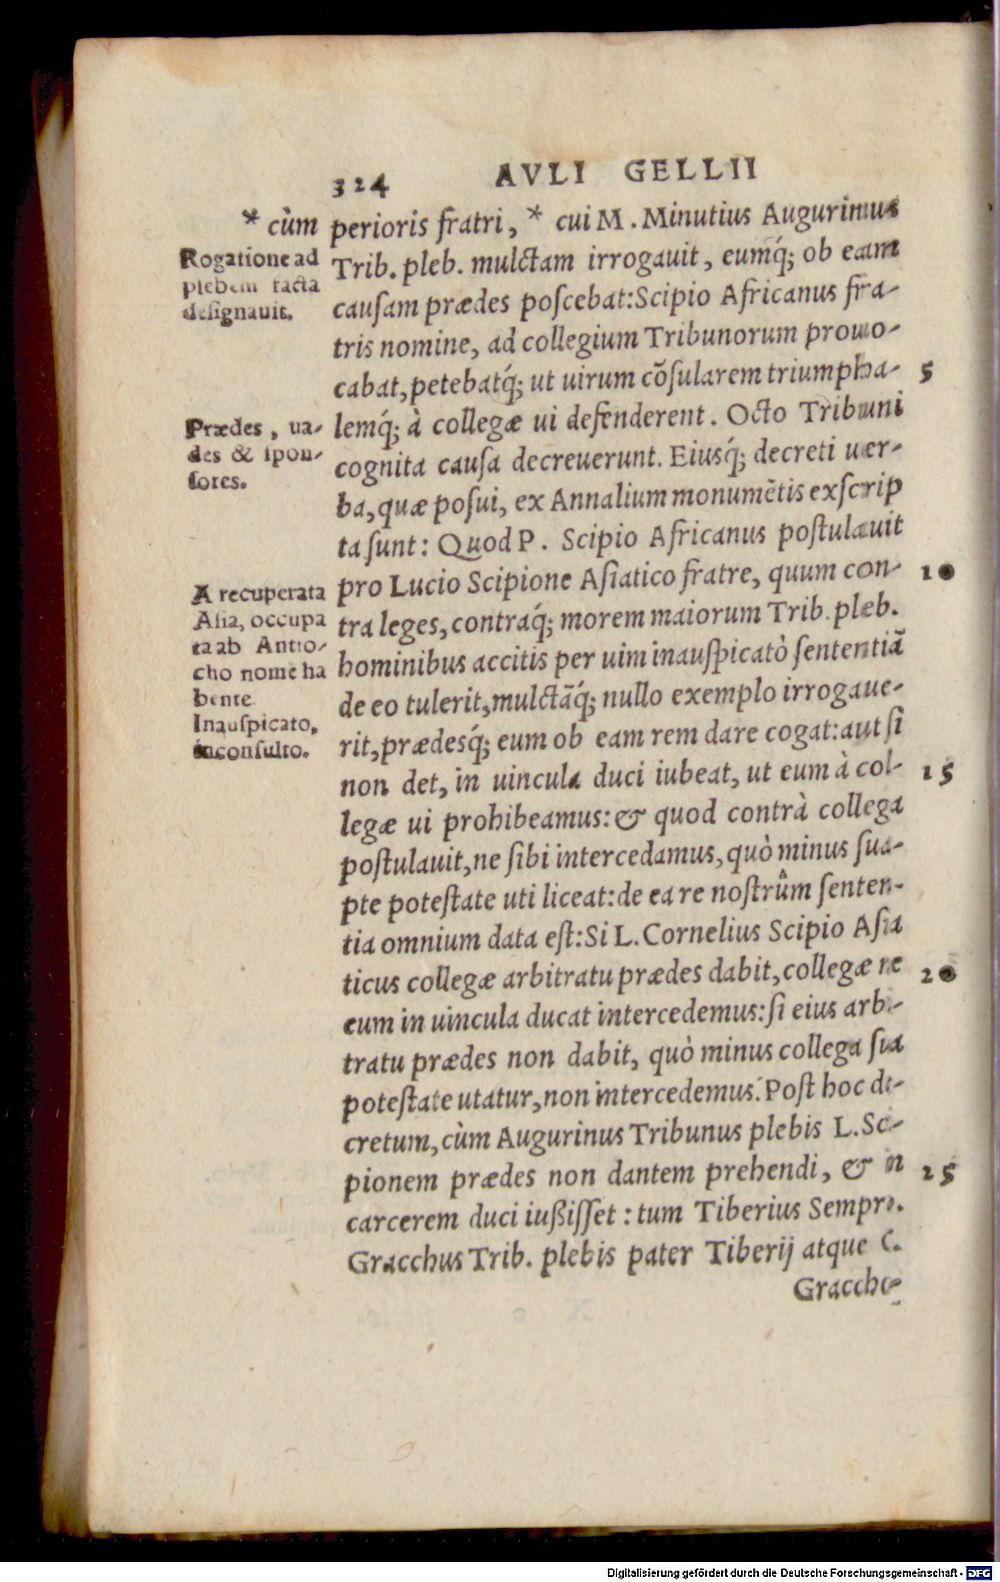 324 AVLI GELLII
* cùm
perioris fratri, * cui M. Minutius Augurinus
Trib. pleb. mulctam irrogauit, eumq́; ob eam
causam prædes poscebat: Scipio Africanus fra-
tris nomine, ad collegium Tribunorum prouo-
cabat, petebatq́; ut uirum cōsularem triumpha-
5
lemq́; à collegæ ui defenderent. Octo Tribuni
cognita causa decreuerunt. Eiusq́; decreti uer-
ba, quæ posui, ex Annalium monumētis exscrip
ta sunt: Quod P. Scipio Africanus postulauit
pro Lucio Scipione Asiatico fratre, quum con-
10
tra leges, contraq́; morem maiorum Trib. pleb.
hominibus accitis per uim inauspicatò sententiā
de eo tulerit, mulctāq́; nullo exemplo irrogaue-
rit, prædesq́; eum ob eam rem dare cogat: aut si
non det, in uincula duci iubeat, ut eum à col-
15
legæ ui prohibeamus: & quod contrà collega
postulauit, ne sibi intercedamus, quò minus sua-
pte potestate uti liceat: de ea re nostrûm senten-
tia omnium data est: Si L. Cornelius Scipio Asia
ticus collegæ arbitratu prædes dabit, collegæ ne
20
eum in uincula ducat intercedemus: si eius arbi-
tratu prædes non dabit, quò minus collega sua
potestate utatur, non intercedemus. Post hoc de-
cretum, cùm Augurinus Tribunus plebis L. Sci-
pionem prædes non dantem prehendi, & in
25
carcerem duci iußisset: tum Tiberius Sempro.
Gracchus Trib. plebis pater Tiberij atque C.
Graccho-
Rogatione ad
plebem facta
designauit.
Prædes, ua-
des & spon-
sores.
A recuperata
Asia, occupa
ta ab Antio-
cho nomē ha
bente
Inauspicato,
inconsulto.
Digitalisierung gefördert durch die Deutsche Forschungsgemeinschaft - DFG